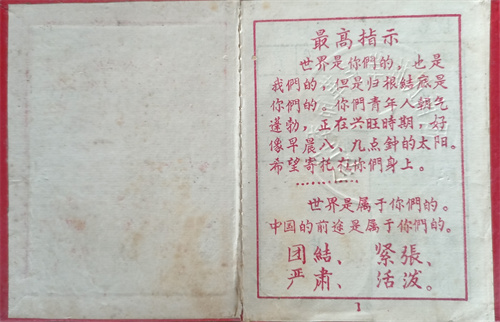 最高指示
世界是你們的，也是
我們的，但是归根結底是
你們的。你們青年人朝气
蓬勃，正在兴旺時期，好
像早晨八、九点鈡的太阳。
希望寄托在你們身上。
世界是属于你們的。
中国的前途是属于你們的。
团結、紧張、
严肃、活泼。
1